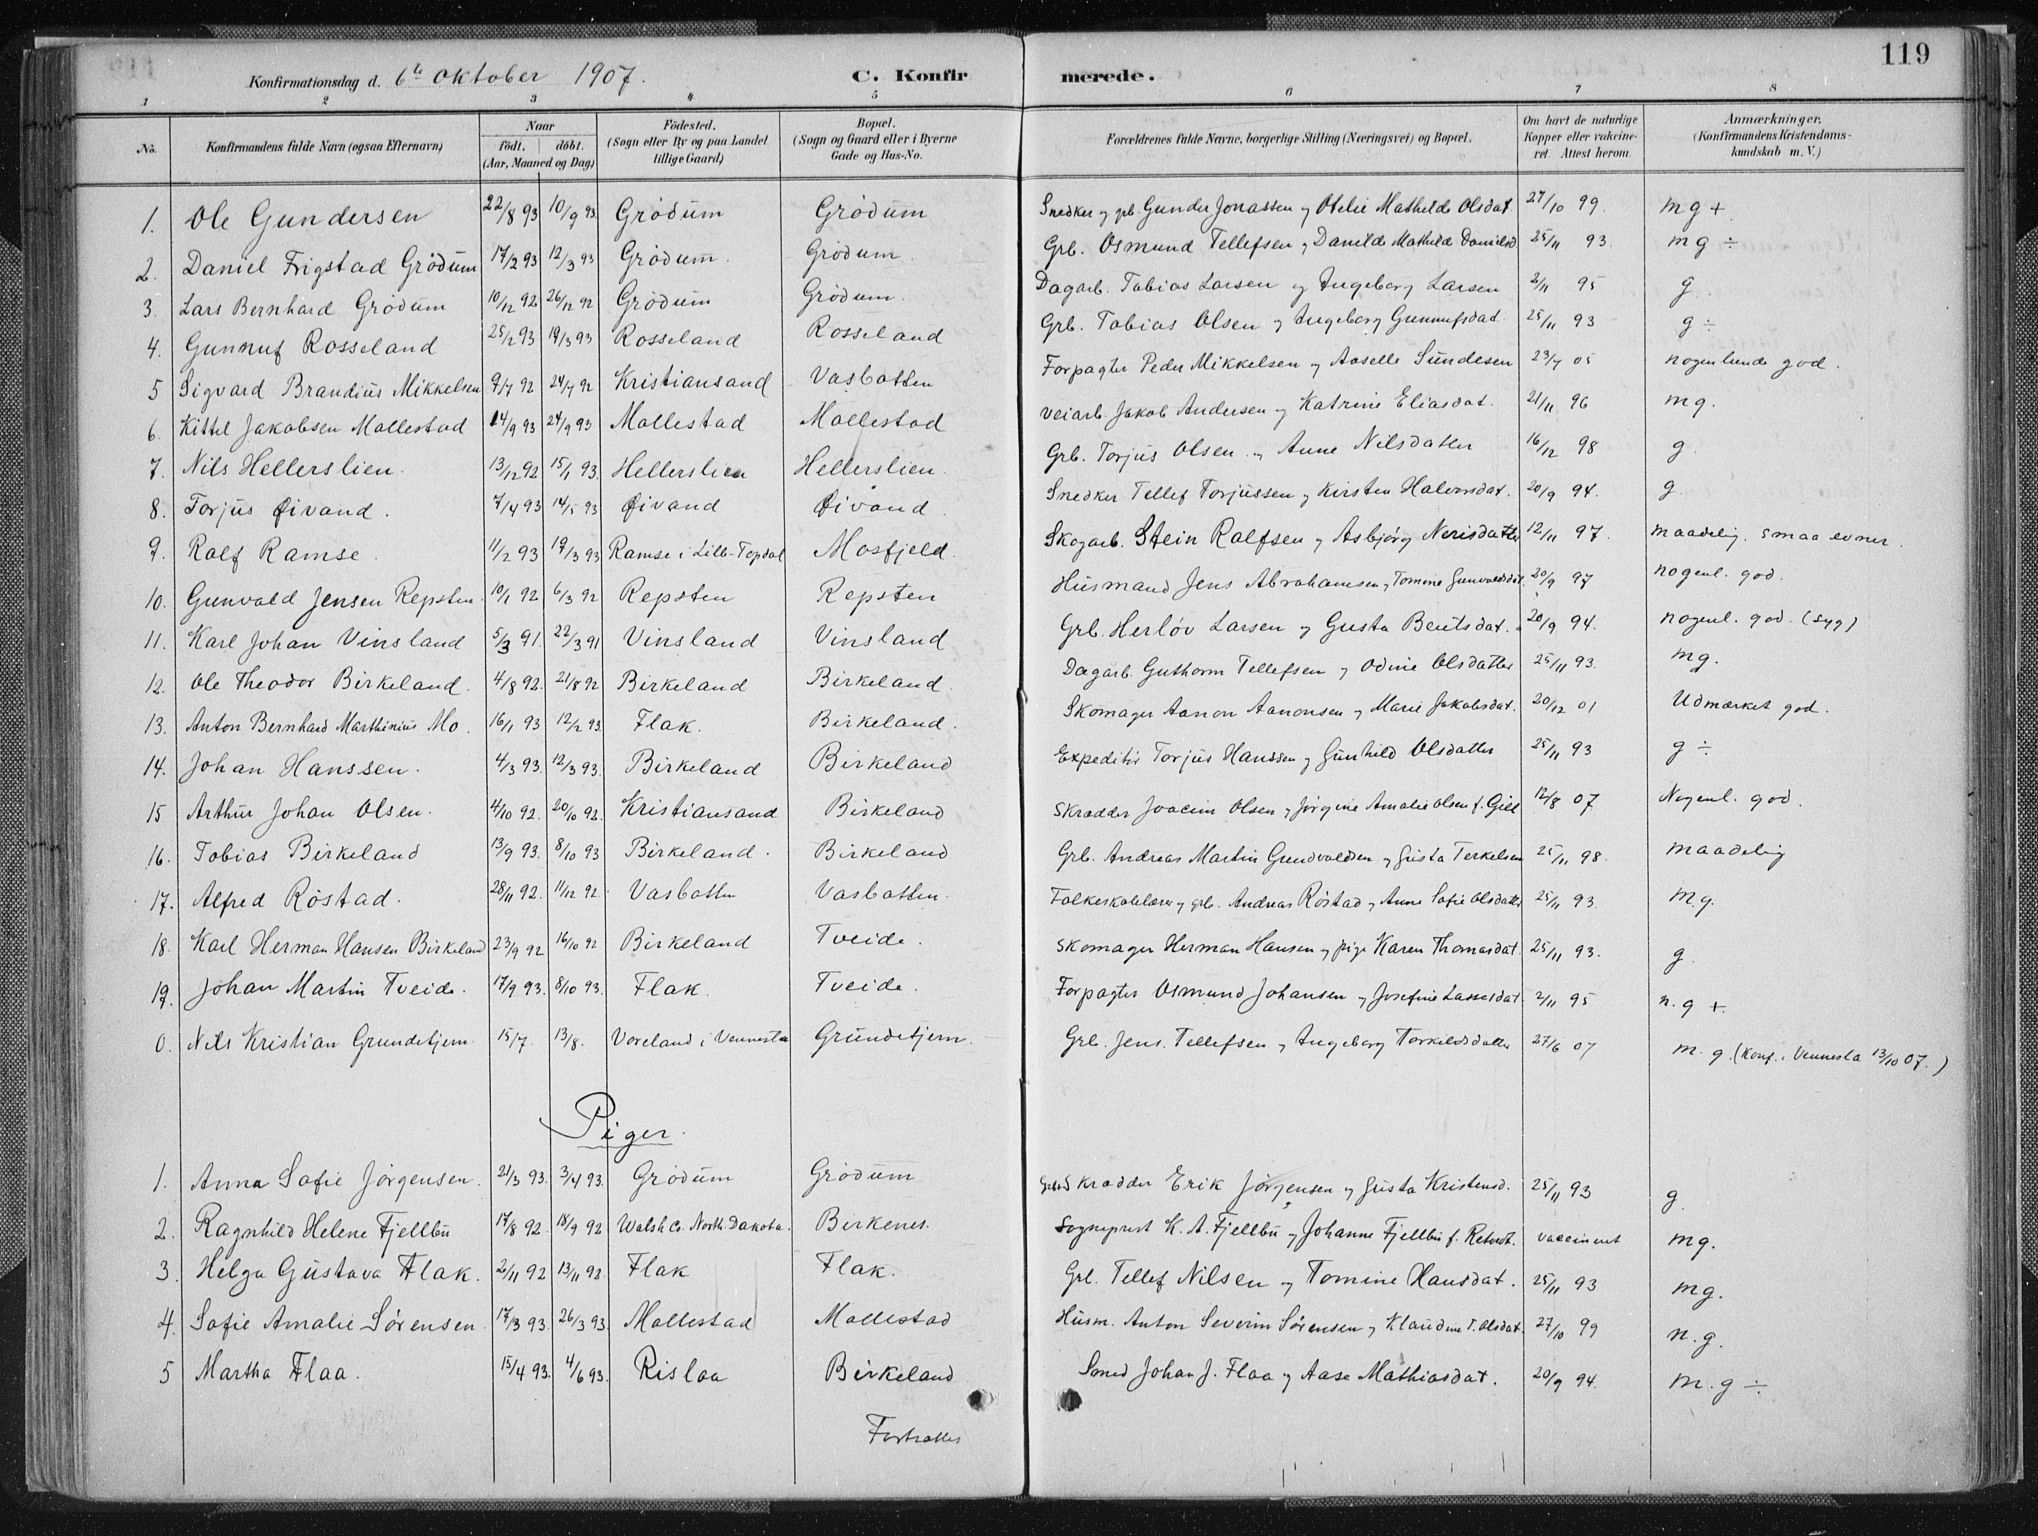 119
Konfirmationsdag d. 6te Oktober 1907. C. Konfirmerede.
1 2 3 4 5 6 7 8
No. | Konfirmandens fulde Navn (ogsaa Efternavn) | Naar födt. döbt. (Aar, Maaned og Dag) | Födested. (Sogn eller By og paa Landet tillige Gaard) | Bopæl. (Sogn og Gaard eller i Byerne Gade og Hus-No. | Forældrenes fulde Navne, borgerlige Stilling (Næringsvei) og Bopæl. | Om havt de naturlige Kopper eller vakcineret. Attest herom. | Anmærkninger. (Konfirmandens Kristendomskundskab m. V.)
1. Ole Gundersen 22/8 93 10/9 93 Grödum Grödum Snedker og grb. Gunder Jonassen og Otelie Mathilde Olsdat. 27/10 99. mg +
2. Daniel Frigstad Grödum 17/2 93 12/3 93 Grödum. Grödum. Grb. Osmund Tellefsen og Danilde Mathilde Danielsd. 25/11 93. mg ÷
3. Lars Bernhard Grödum 10/12 92 26/12 92 Grödum Grödum. Dagarb. Tobias Larsen og Ingeborg Larsen 2/11 95 g.
4. Gunnuf Rosseland 25/2 93 19/3 93 Rosseland Rosseland Grb. Tobias Olsen og Ingeborg Gunnufsdat. 25/11 93 g ÷
5 Sigvard Brandius Mikkelsen 9/7 92 24/7 92 Kristiansand Vasbotten Forpagter Peder Mikkelsen og Aaselle Sundesen 23/7 05 nogenlunde god.
6. Kittel Jakobsen Mollestad 14/9 93 24/9 93 Mollestad Mollestad Veiarb. Jakob Andersen og Katrine Eliasdat. 21/11 96 mg.
7. Nils Hellerslien. 13/12 92 15/1 93. Hellerslien Hellerslien. Grb. Torjus Olsen og Anne Nilsdatter 16/12 98 g.
8. Torjus Øivand. 7/4 93 14/5 93 Øivand Øivand. Snedker Tellef Torjussen og Kirsten Halvorsdat. 20/9 94. g.
9. Rolf Ramse. 11/2 93 19/3 93 Ramse i Lille-Topdal Mosfjeld. Skogarb. Stein Rolfsen og Asbjørg Nerisdatter 12/11 97. maadelig. smaa evner.
10. Gunvald Jensen Repsten. 10/1 92 6/3 92 Repsten Repsten Husmand Jens Abrahamsen og Tomine Gunvaldsdat. 20/9 97 nogenl. god.
11. Karl Johan Vinsland 5/3 91. 22/3 91 Vinsland Vinsland Grb. Herlöv Larsen og Gusta Bentsdat. 20/9 94. nogenl. god. (syg)
12. Ole Theodor Birkeland. 4/8 92. 21/8 92 Birkeland Birkeland. Dagarb. Guthorm Tellefsen og Odine Olsdatter 25/11 93. mg.
13. Anton Bernhard Marthinius Mo. 16/1 93 12/2 93. Flak. Birkeland. Skomager Aanon Aanonsen og Marie Jakobsdat. 20/12 01 Udmærket god.
14. Johan Hanssen. 4/3 93. 12/3 93. Birkeland Birkeland Expeditör Torjus Hanssen og Gunhild Olsdatter 25/11 93 g ÷
15 Arthur Johan Olsen. 4/10 92. 20/10 92. Kristiansand Birkeland Skrædder Joacim Olsen og Jörgine Amalie Olsen f. Gill 12/8 07. Nogenl. god.
16. Tobias Birkeland 13/9 93. 8/10 93 Birkeland. Birkeland Grb. Andreas Martin Gundvaldsen og Gusta Terkelsen 25/11 98. maadelig
17. Alfred Röstad. 28/11 92. 11/12 92. Vasbotten Vasbotten. Folkeskolelærer og grb. Andreas Röstad og Anne Sofie Olsdatter 25/11 93. Mg.
18. Karl Herman Hansen Birkeland 23/9 92 16/10 92 Birkeland Tveide. Skomager Herman Hansen og pige Karen Thomasdat. 25/11 93. g.
19. Johan Martin Tveide. 17/9 93. 8/10 93. Flak. Tveide. Forpagter Osmund Johansen og Josefine Lassesdat. 2/11 95 n.g +.
0. Nils Kristian Grundetjern. 15/7. 13/8. Voreland i Vennesla Grundetjern. Grb. Jens Tellefsen og Ingeborg Torkildsdatter 27/6 07 m. g. (Konf. i Vennesla 13/10 07.)
Piger.
1. Anna Sofie Jörgensen. 21/3 93. 3/4 93. Grödum Grödum Skrædder Erik Jörgensen og Gusta Kristensd. 25/11 93 g.
2. Ragnhild Helene Fjellbu 17/8 92. 18/9 92 Walsh Co. North. Dakota. Birkenes. Sogneprest K. A. Fjellbu og Johanne Fjellbu f. vaccineret mg.
3. Helga Gustava Flak. 2/11 92 13/11 92. Flak Flak. Grb. Tellef Nilsen og Tomine Hansdat. 25/11 93 mg.
4. Sofie Amalie Sörensen. 17/3 93. 26/3 93. Mollestad Mollestad Husm. Anton Severin Sörensen og Klaudine T. Olsdat. 27/10 99 n.g.
5 Martha Flaa. 15/4 93. 4/6 93. Rislaa Birkeland Smed Johan J. Flaa og Aase Mathiasdat. 20/9 94. m.g ÷.
Fortsættes